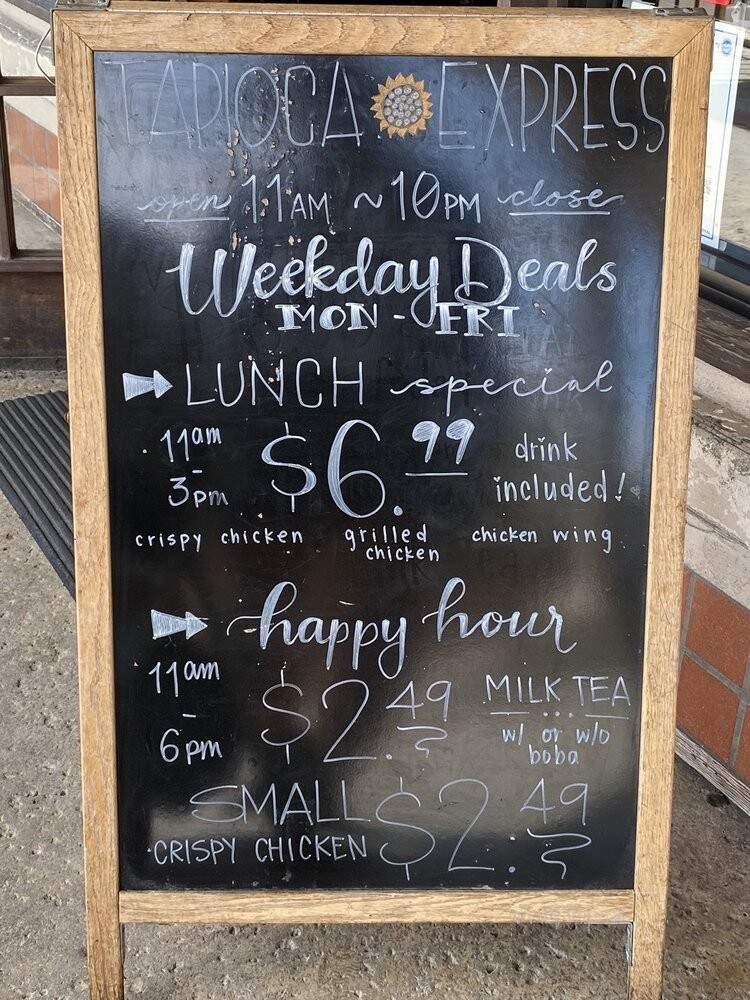 TAPIOCA EXPRESS
open 11AM ~ 10PM close
Weekday Deals
MON - FRI
LUNCH special
11am - 3pm $6.99 drink included!
crispy chicken grilled chicken chicken wing
happy hour
11am - 6pm $2.49 MILK TEA w/ or w/o boba
SMALL CRISPY CHICKEN $2.49